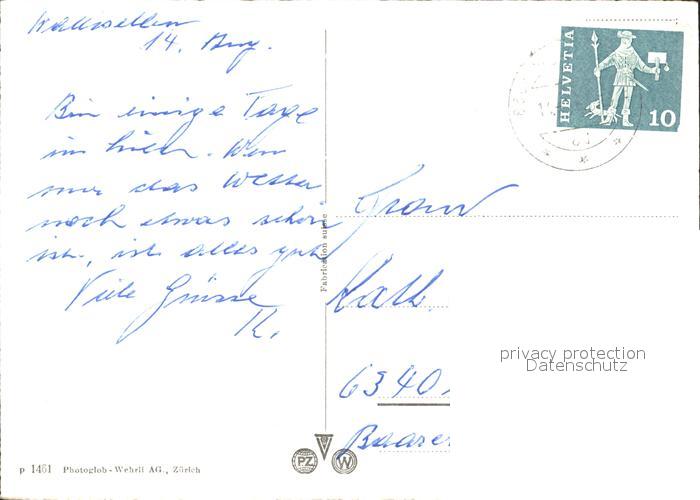 Wallisellen
14. Aug.
Bin einige Tage
im hies. Wenn
nur das Wetter
noch etwas schön
ist, ist alles gut
Viele Grüsse
R.
HELVETIA
10
Fabrication suisse
Frau
Kath.
6340
Baarer
privacy protection
Datenschutz
PZ
W
p 1461 Photoglob-Wehrli AG., Zürich